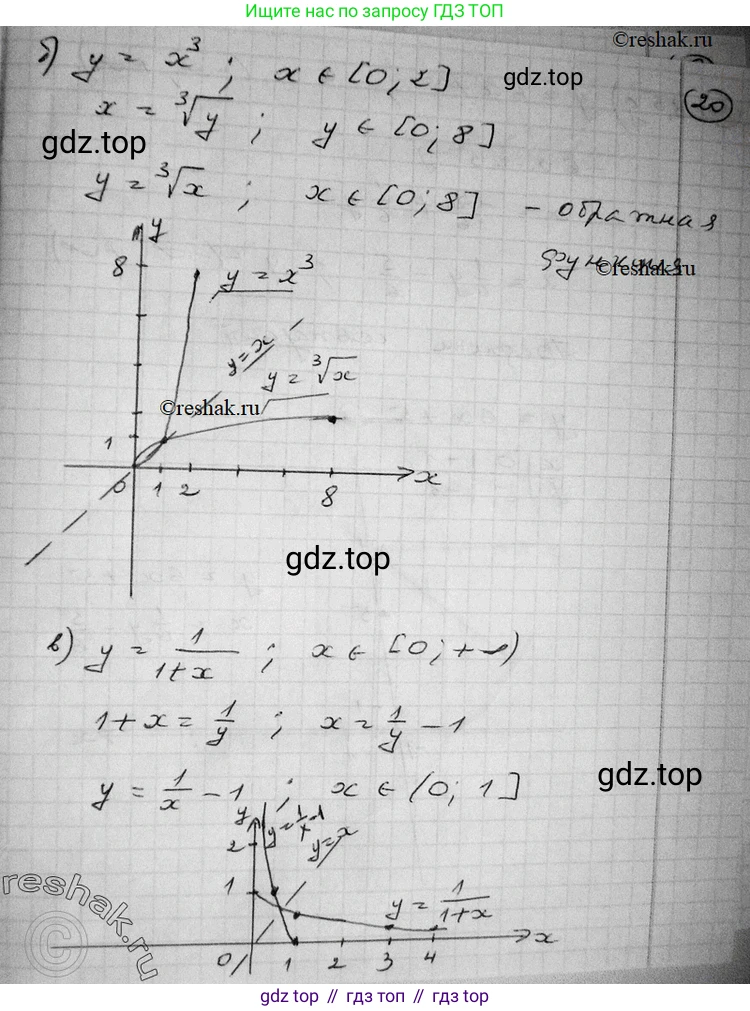 Ищите нас по запросу ГДЗ ТОП
©reshak.ru
б) y = x³ ; x ∈ [0; 2]
gdz.top
20
x = ∛y ; y ∈ [0; 8]
gdz.top
y = ∛x ; x ∈ [0; 8] - обратная
функция
©reshak.ru
y
8
y = x³
y = x
y = ∛x
©reshak.ru
1
0 1 2 8 x
gdz.top
в) y = 1/(1+x) ; x ∈ [0; +∞)
1 + x = 1/y ; x = 1/y - 1
gdz.top
y = 1/x - 1 ; x ∈ (0; 1]
y
y = 1/x - 1
y = x
2
1
y = 1/(1+x)
0 1 2 3 4 x
reshak.ru
©reshak.ru
gdz top // гдз топ // gdz top